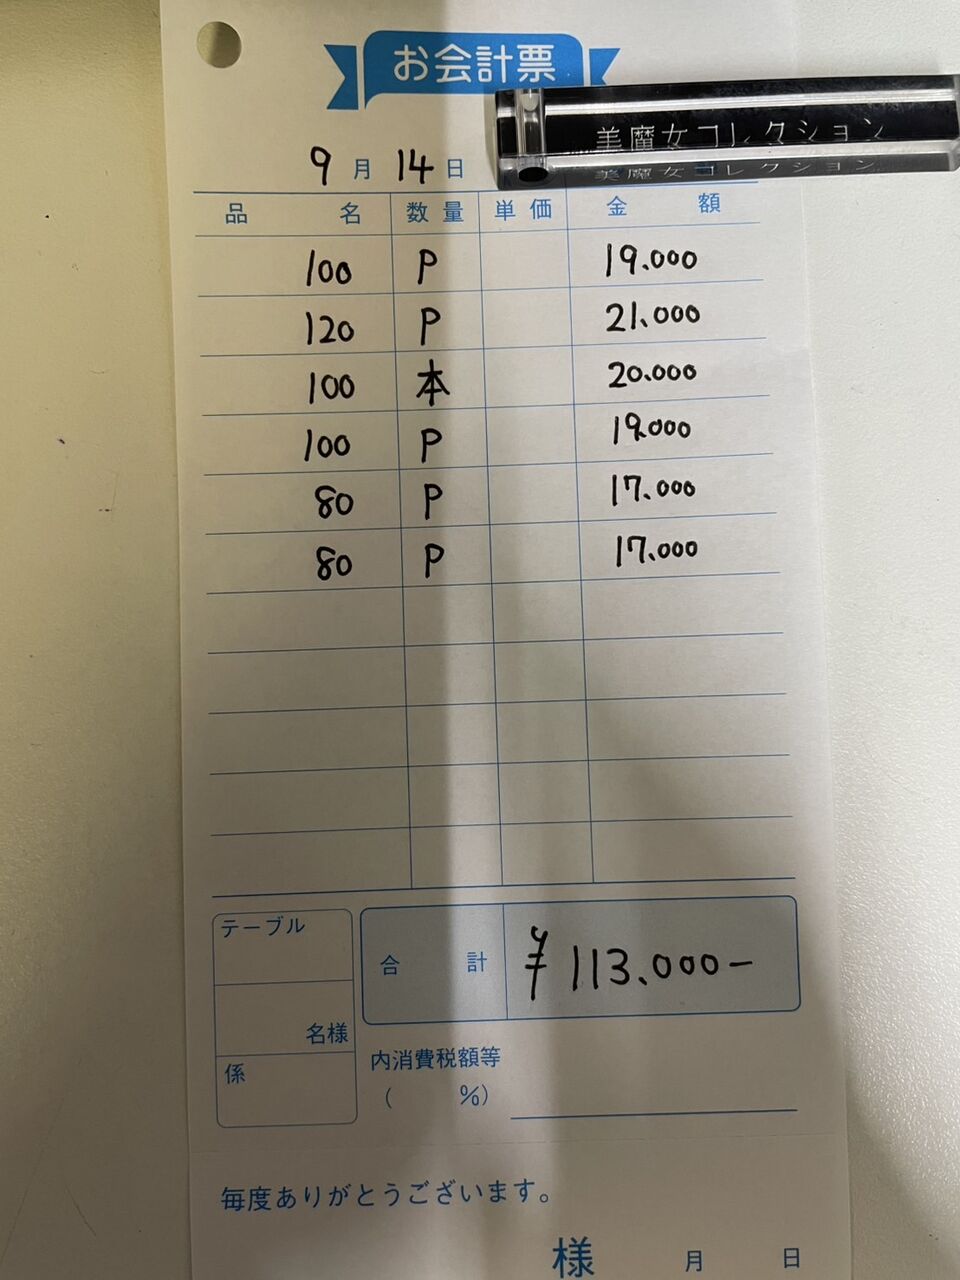 お会計票
美魔女コレクション
美魔女コレクション
9月14日
品名 数量 単価 金額
100 P 19.000
120 P 21.000
100 本 20.000
100 P 19.000
80 P 17.000
80 P 17.000
テーブル
名様
係
合計 ¥113.000−
内消費税額等
( %)
毎度ありがとうございます。
様 月 日